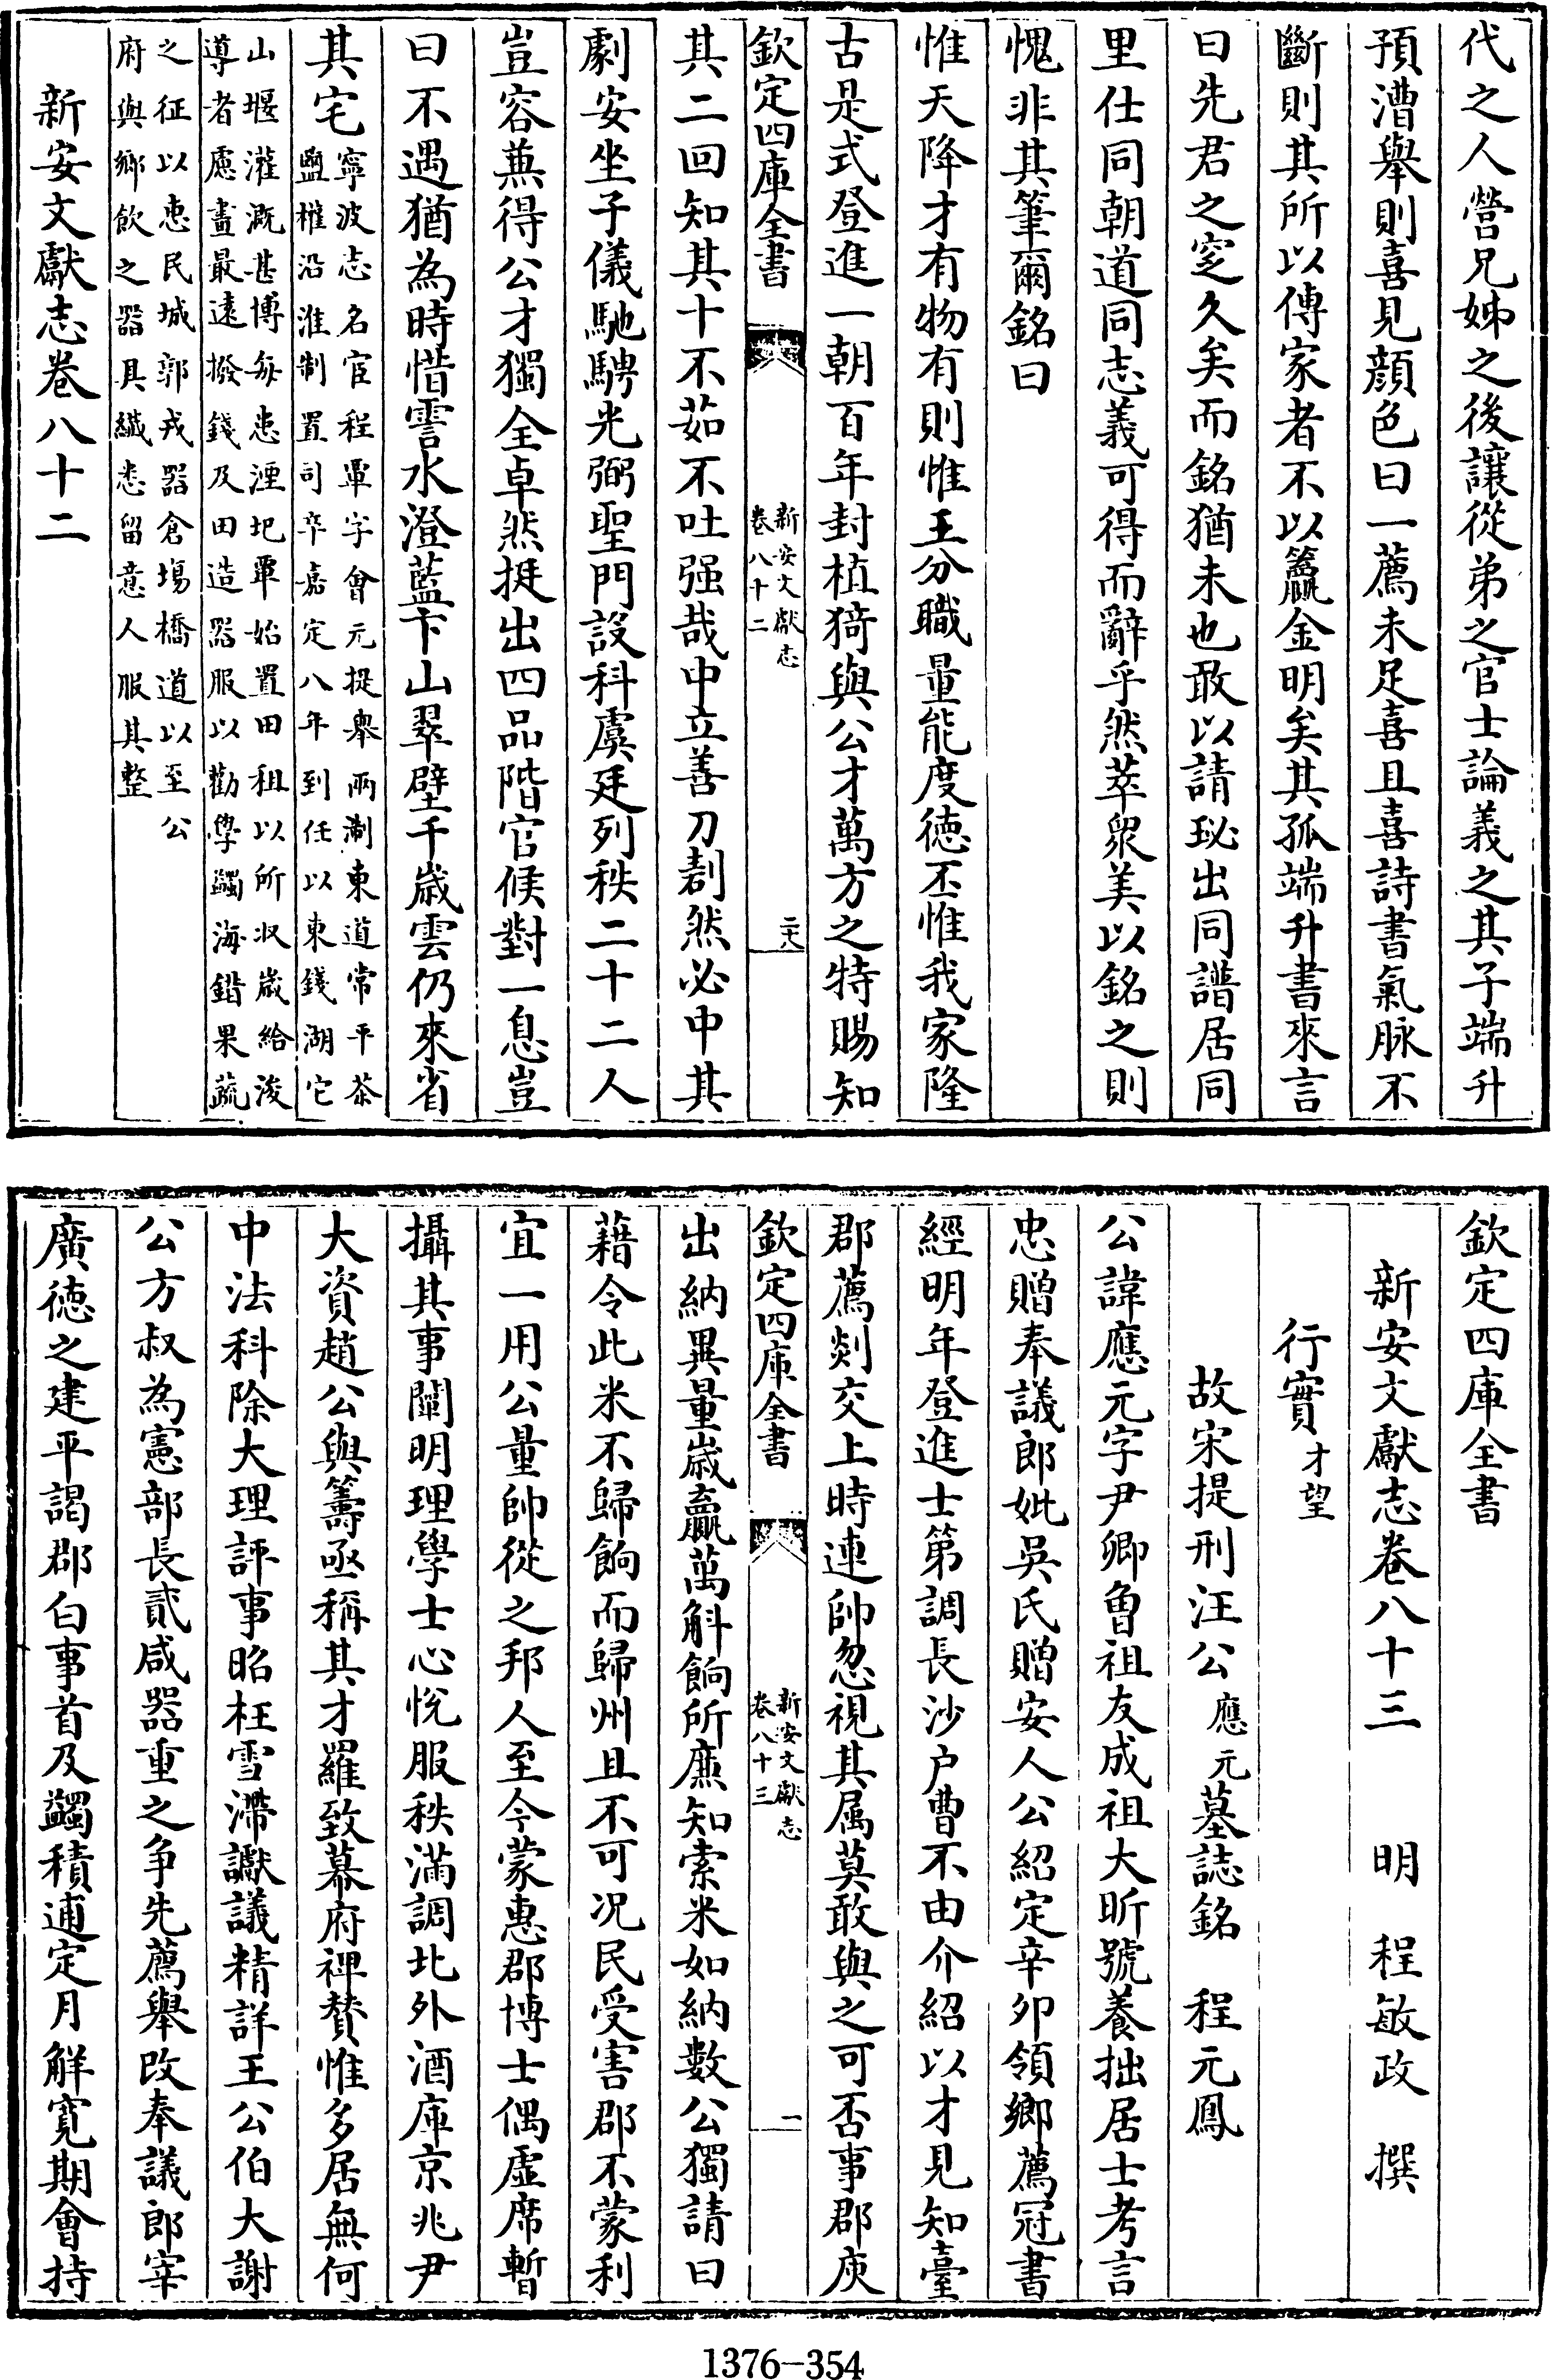 代之人營兄姊之後讓從弟之官士論義之其子端升
預漕舉則喜見顔色曰一薦未足喜且喜詩書氣脉不
斷則其所以傳家者不以籯金明矣其孤端升書來言
曰先君之窆久矣而銘猶未也敢以請珌出同譜居同
里仕同朝道同志義可得而辭乎然萃衆美以銘之則
愧非其筆爾銘曰
惟天降才有物有則惟王分職量能度徳丕惟我家隆
古是式登進一朝百年封植猗與公才萬方之特賜知
欽定四庫全書
新安文獻志
卷八十二
二十八
其二回知其十不茹不吐强哉中立善刀剨然必中其
劇安坐子儀馳騁光弼聖門設科虞廷列秩二十二人
豈容兼得公才獨全卓然挺出四品階官候對一息豈
曰不遇猶為時惜霅水澄藍卞山翠壁千歳雲仍來省
其宅寧波志名宦程覃字會元提舉兩淛東道常平茶
鹽𣙜沿淮制置司卒嘉定八年到任以東錢湖它
山堰灌溉甚博每患湮圯覃始置田租以所収歳給浚
導者慮畫最逺撥錢及田造器服以勸學蠲海錯果蔬
之征以惠民城郭戎器倉場橋道以至公
府與鄉飲之器具纎悉留意人服其整
新安文獻志卷八十二
欽定四庫全書
新安文獻志卷八十三 明 程敏政 撰
行實才望
故宋提刑汪公應元墓誌銘 程元鳳
公諱應元字尹卿曾祖友成祖大昕號養拙居士考言
忠贈奉議郎妣吳氏贈安人公紹定辛卯領鄉薦冠書
經明年登進士第調長沙户曹不由介紹以才見知臺
郡薦剡交上時連帥忽視其属莫敢與之可否事郡庾
欽定四庫全書
新安文獻志
卷八十三
一
出納異量歳贏萬斛餉所廉知索米如納數公獨請曰
藉令此米不歸餉而歸州且不可况民受害郡不蒙利
宜一用公量帥從之邦人至今蒙惠郡博士偶虛席暫
攝其事闡明理學士心悦服秩滿調北外酒庫京兆尹
大資趙公與𥲤亟稱其才羅致幕府禆賛惟多居無何
中法科除大理評事昭枉雪滯讞議精詳王公伯大謝
公方叔為憲部長貳咸器重之争先薦舉改奉議郎宰
廣徳之建平謁郡白事首及蠲積逋定月解寛期會持
1376-354